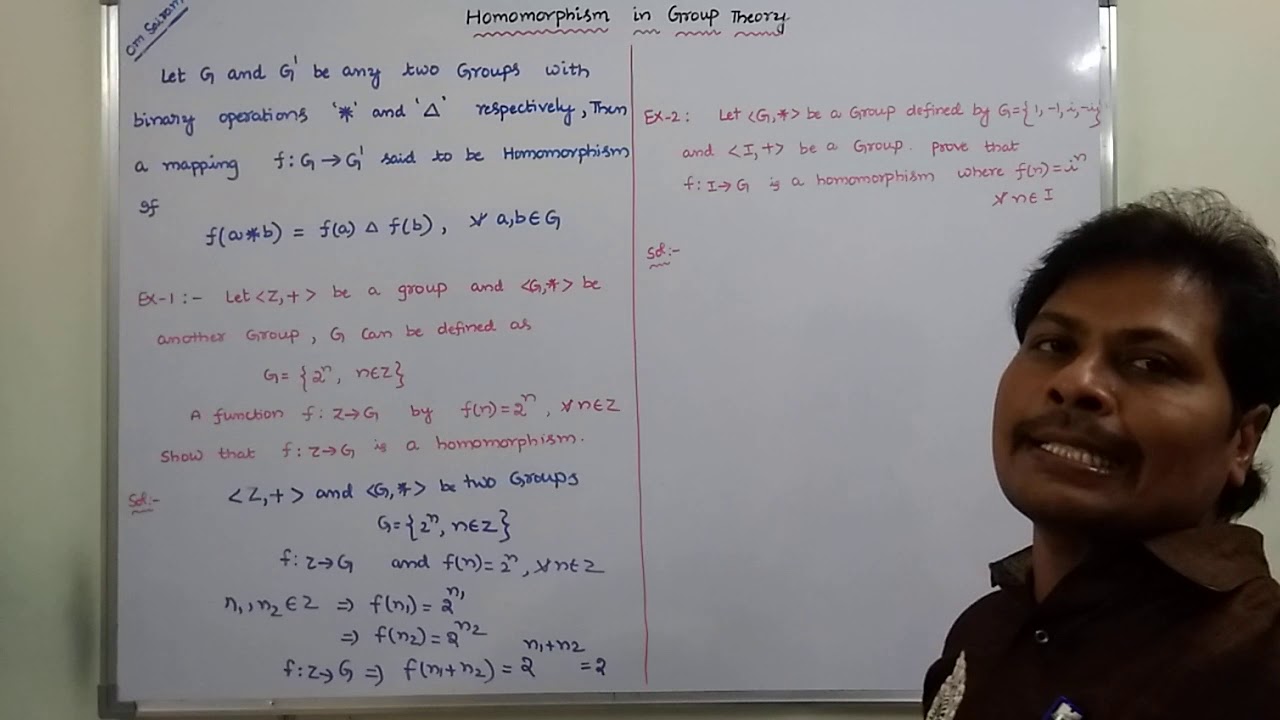 Om Sairam
Homomorphism in Group Theory
Let G and G' be any two Groups with
binary operations '*' and 'Δ' respectively, Then
a mapping f: G → G' said to be Homomorphism
If
f(a*b) = f(a) Δ f(b), ∀ a,b ∈ G
Ex-1:- Let <Z,+> be a group and <G,*> be
another Group, G can be defined as
G = {2ⁿ, n∈Z}
A function f: Z→G by f(n)=2ⁿ, ∀n∈Z
Show that f: Z→G is a homomorphism.
Sol:- <Z,+> and <G,*> be two Groups
G={2ⁿ, n∈Z}
f: Z→G and f(n)=2ⁿ, ∀n∈Z
n₁, n₂ ∈ Z ⇒ f(n₁) = 2^n₁
⇒ f(n₂) = 2^n₂
f: Z→G ⇒ f(n₁+n₂) = 2^n₁+n₂ = 2
Ex-2: Let <G,*> be a Group defined by G={1,-1,i,-i}
and <I,+> be a Group. prove that
f: I→G is a homomorphism where f(n)=iⁿ
∀n∈I
Sol:-